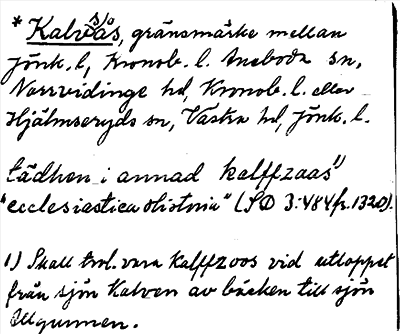 * Kalvsjöås, gränsmärke mellan
Jönk. l, Kronob. l. Aneboda sn,
Norrvidinge hd, Kronob. l. eller
Hjälmseryds sn, Västra hd, Jönk. l.
tädhen i annad kalffzaas 1)
"ecclesiastica distria" (SD 3:484 fr. 1320).
1) Skall trol. vara kalffzoos vid utloppet
från sjön Kalven av bäcken till sjön
Allgunnen.